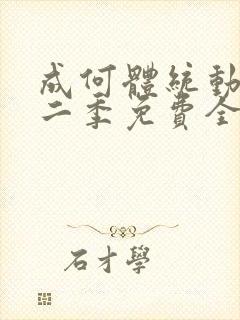 成何體統動
二季免費全
石才學